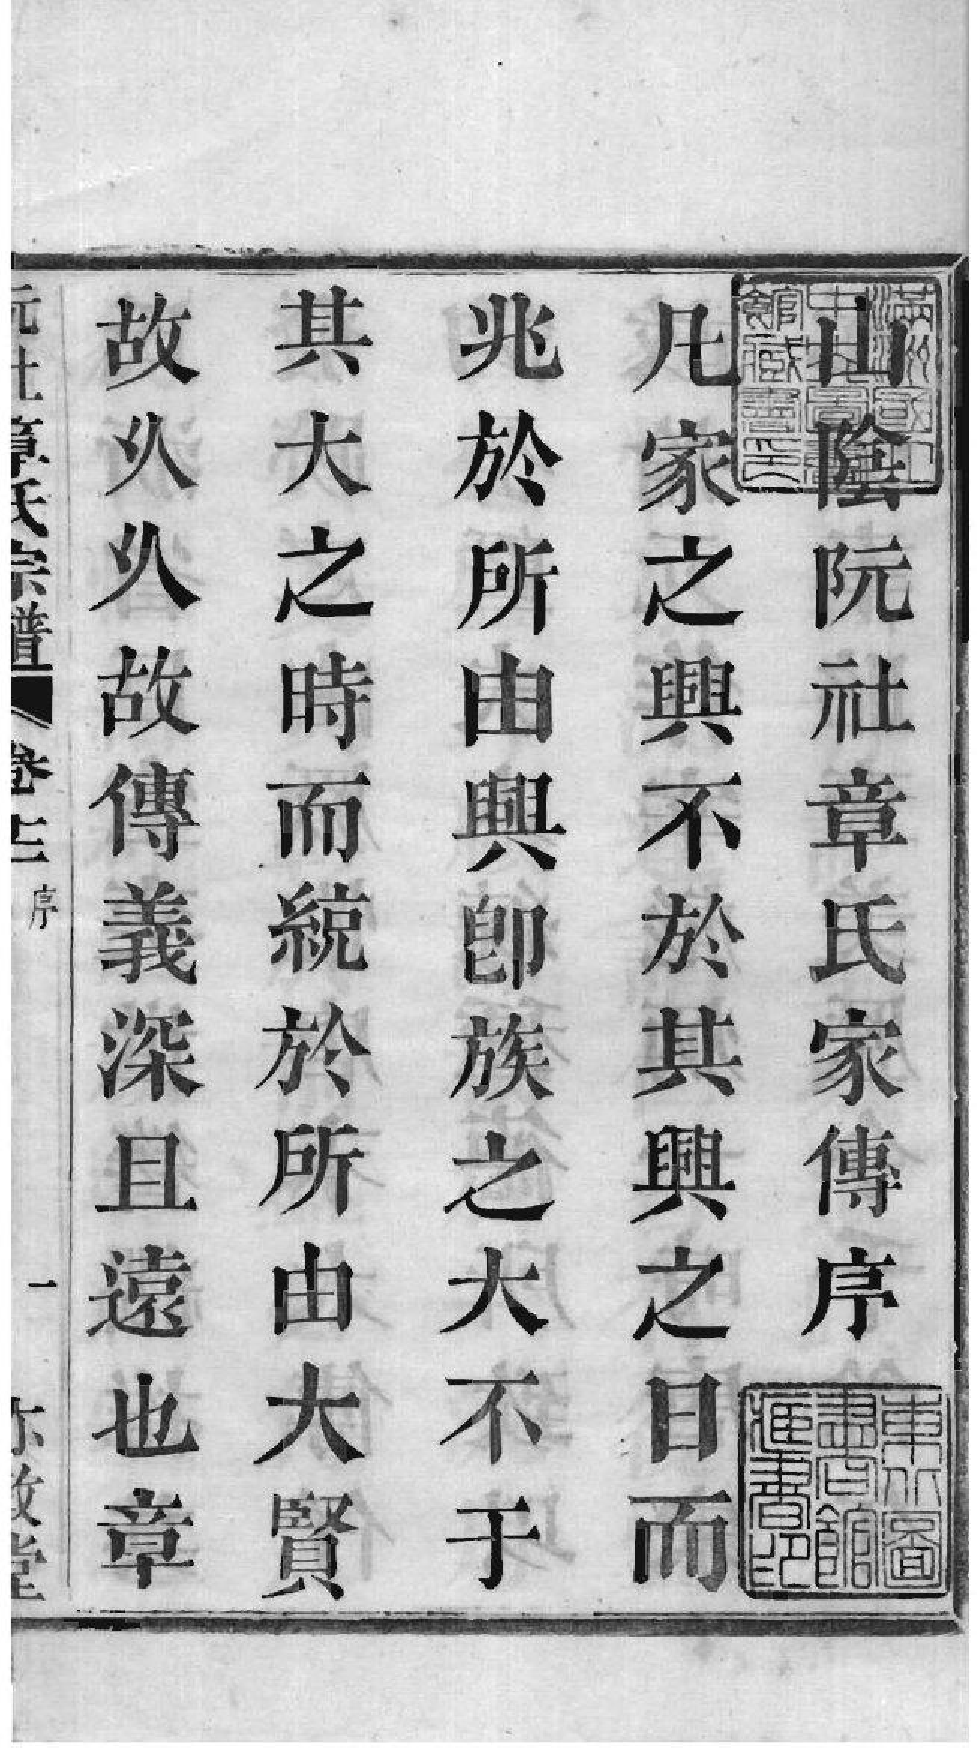 滿洲國立中央圖書館藏書印
山陰阮社章氏家傳序
東北圖書館藏書印
凡家之興不於其興之日而
兆於所由興卽族之大不于
其大之時而統於所由大賢
故乆乆故傳義深且遠也章
阮社章氏宗譜
卷
序
一